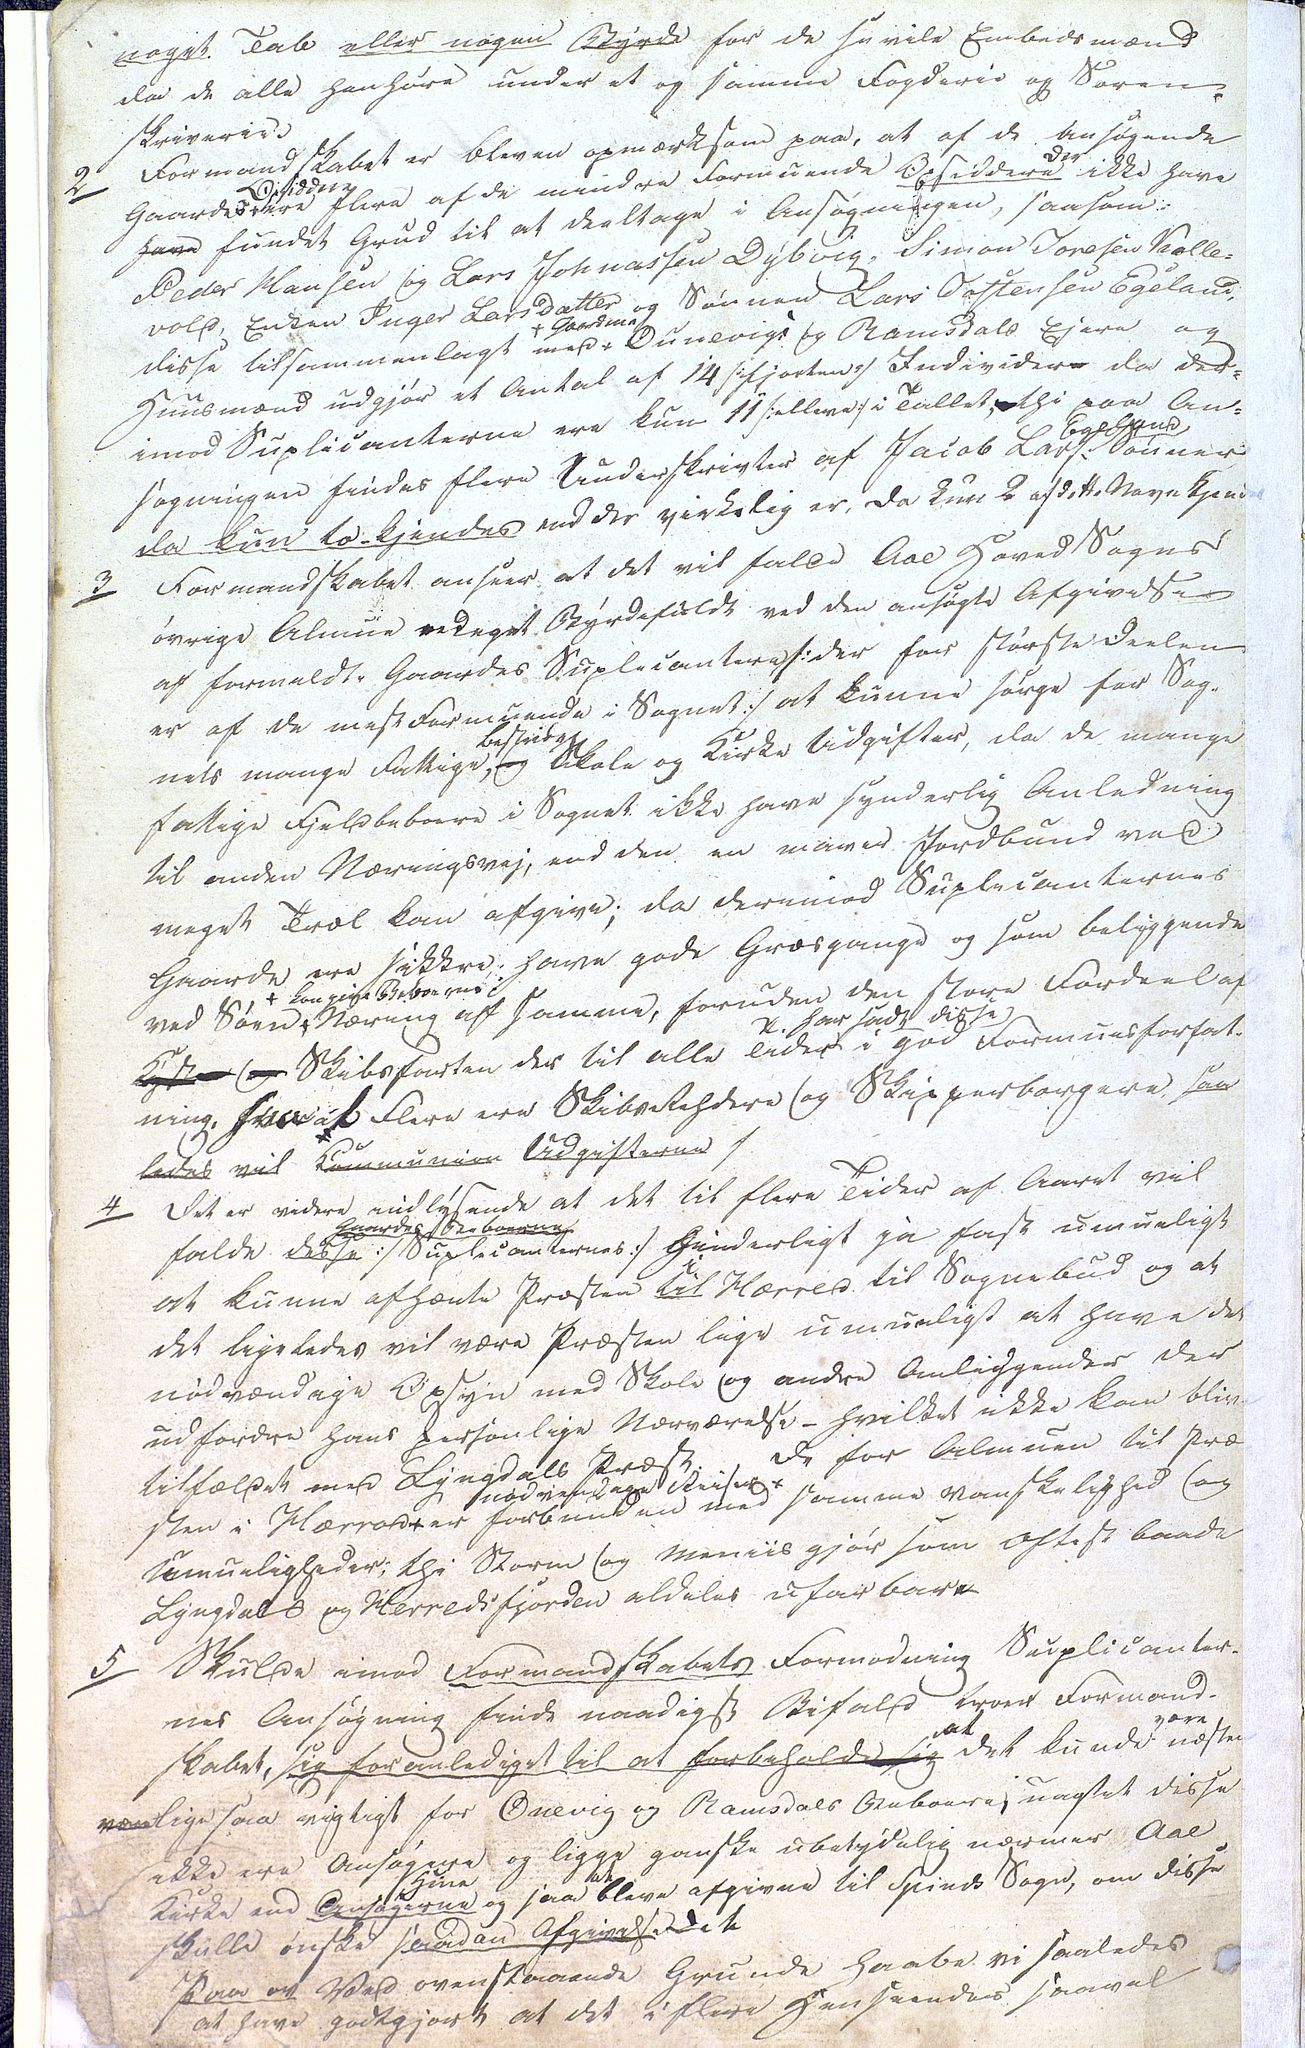 noget Tab eller nogen Byrde for de sivile Embedsmænd
da de alle henhøre under et og samme Fogderie og Soren-
skriverie.
2 Formandskabet er bleven opmærksom paa, at af de ansøgende
Gaardes Opsiddere ere flere af de mindre Formuende Opsiddere der ikke have
have fundet Grud til at deeltage i Ansøgningen, saasom:
Peder Hansen og Lars Johnassen Dybvig, Simon Toresen Kolle-
vold, Enken Inger Larsdatter og Sønnen Lars Tostensen Egeland,
disse tilsammenlagt med + Gaardene Ounevigs og Ramsdals Ejere og
Huusmænd udgjør et Antal af 14 /:fjorten:/ Individer da der-
imod Suplicanterne ere kun 11 /:elleve:/ i Tallet, thi paa An-
søgningen findes flere Underskrivter af Jacob Lars: Egelands Sønner
da kun to kjendes end der virkelig er, da kun 2 af dette Navn kjen
3 Formandskabet anseer at det vil falde Aae Hoved Sogns
øvrige Almue meget Byrdefuldt ved den ansøgte Afgivelse
af formeldte Gaardes Suplicantere /:der for største Deelen
er af de mest Formuende i Sognet:/ at kunne sørge for Sog-
nets mange Fattige, og bestride Skole og Kirke Udgifter, da de mange
fattige Fjeldbeboere i Sognet ikke have synderlig Anledning
til anden Næringsvej, end den en maver Jordbund ved
meget Træl kan afgive; da derimod Suplecanternes
Gaarde ere sikkre, have gode Græsgange og som beliggende
ved Søen, + kan give Beboerne Næring af samme, foruden den store Fordeel af
Kyst og Skibsfarten der til alle Tider har sadt disse i god Formuesforfat-
ning, hvoraf Flere ere Skibsrehdere og Skipperborgere, saa
ledes vil Kommunion Udgifterne /
4 Det er videre indlysende at det til flere Tider af Aaret vil
falde disse Gaardes Beboerne /:Suplecanternes:/ hinderligt ja fast umueligt
at kunne afhænte Præsten til i Hærred til Sognebud og at
det ligeledes vil være Præsten lige umueligt at have det
nødvændige Opsyn med Skole og andre Anliggender der
udfordre hans personlige Nærværelse – hvilket ikke kan bliv
tilfældet med Lyngdals Præst. De for Almuen til Præ
sten i Hærred + er nødvendige Reiser + forbunden med samme vanskelighed og
Umueligheder; thi Storm og Meniis gjør som oftest baade
Lyngdals og Herredsfjorden aldeles ufarbare
5 Skulde imod Formandskabets Formodning Suplicanter-
nes Ansøgning finde naadigst Bifald troer Formand-
skabet, sig foranlediget til at forbeholde sig at det kunde være næsten
være ligesaa vigtigt for Onevig og Ramsdals Beboere, uagtet disse
ikke ere Ansøgere og ligge ganske ubetydelig nærmer Aae
Kirke end Ansøgerne Hine og saa at bleve afgivne til Spinds Sogn, om disse
skulle ønske saadan Afgivelse det
Paa og Ved ovenstaaende Grunde haabe vi saaledes
at have godtgjort at det i flere Henseender saavel